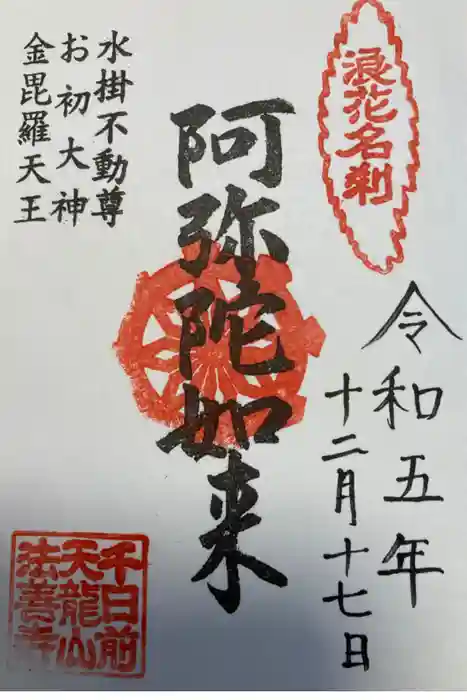 浪花名刹
令和五年
十二月十七日
阿弥陀如来
水掛不動尊
お初大神
金毘羅天王
千日前
天龍山
法善寺